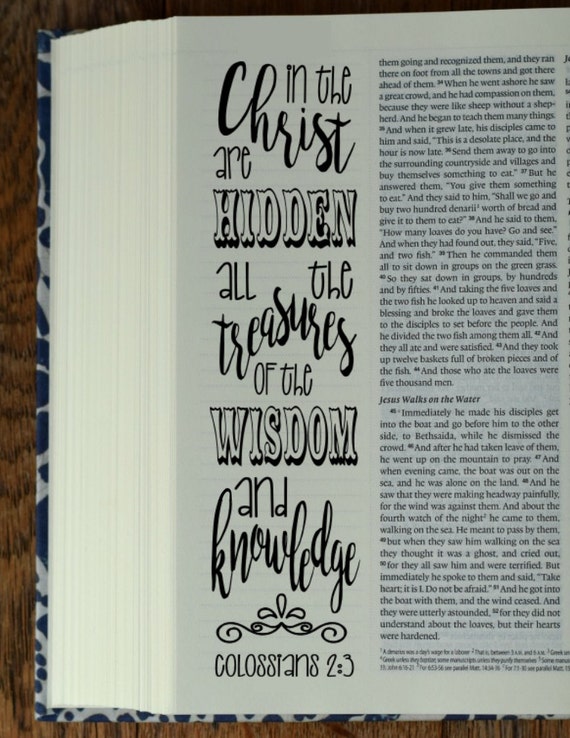 in the
Christ
are
HIDDEN
all the
treasures
OF the
WISDOM
and
knowledge
Colossians 2:3
them going and recognized them, and they ran
there on foot from all the towns and got there
ahead of them. 34 When he went ashore he saw
a great crowd, and he had compassion on them,
because they were like sheep without a shep-
herd. And he began to teach them many things.
35 And when it grew late, his disciples came to
him and said, "This is a desolate place, and the
hour is now late. 36 Send them away to go into
the surrounding countryside and villages and
buy themselves something to eat." 37 But he
answered them, "You give them something
to eat." And they said to him, "Shall we go and
buy two hundred denarii1 worth of bread and
give it to them to eat?" 38 And he said to them,
"How many loaves do you have? Go and see."
And when they had found out, they said, "Five,
and two fish." 39 Then he commanded them
all to sit down in groups on the green grass.
40 So they sat down in groups, by hundreds
and by fifties. 41 And taking the five loaves and
the two fish he looked up to heaven and said a
blessing and broke the loaves and gave them
to the disciples to set before the people. And
he divided the two fish among them all. 42 And
they all ate and were satisfied. 43 And they took
up twelve baskets full of broken pieces and of
the fish. 44 And those who ate the loaves were
five thousand men.
Jesus Walks on the Water
45 Immediately he made his disciples get
into the boat and go before him to the other
side, to Bethsaida, while he dismissed the
crowd. 46 And after he had taken leave of them,
he went up on the mountain to pray. 47 And
when evening came, the boat was out on the
sea, and he was alone on the land. 48 And he
saw that they were making headway painfully,
for the wind was against them. And about the
fourth watch of the night2 he came to them,
walking on the sea. He meant to pass by them,
49 but when they saw him walking on the sea
they thought it was a ghost, and cried out,
50 for they all saw him and were terrified. But
immediately he spoke to them and said, "Take
heart; it is I. Do not be afraid." 51 And he got into
the boat with them, and the wind ceased. And
they were utterly astounded, 52 for they did not
understand about the loaves, but their hearts
were hardened.
1 A denarius was a day's wage for a laborer 2 That is, between 3 A.M. and 6 A.M. 3 Greek
4 Greek unless they baptize; some manuscripts unless they purify themselves 5 Some
19; John 6:16-21 For 6:53-56 see parallel Matt. 14:34-36 For 7:1-30 see parallel Matt.